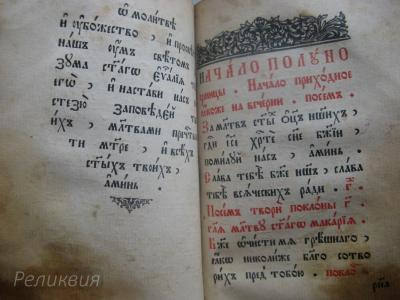 ѿ молитвѣ
и҆ ᲂу҆божество , и҆ просвѣ
нашъ ᲂу҆мъ свѣтомъ
зума ст҃агѡ є҆ѵⷢ҇алїѧ
є҆гѡ̀ , и҆ настави насъ
стезю̀ заповѣдеи тво
ихъ , мл҃твами пречⷭ҇ты
ти мт҃ре , и҆ всѣхъ
ст҃ыхъ твоихъ ,
а҆минь .
начало полꙋно
щницы . Начало приходное
ꙗкоже на вечерни . посемъ .
За мл҃твъ ст҃ыⷯ ѻ҆ц҃ъ нш҃ихъ ,
гⷭ҇и і҆сⷭ҇е хрⷭ҇те сн҃е бж҃їи ,
помилꙋи насъ , а҆минь .
Слава тебѣ бж҃е нш҃ъ , слава
тебѣ всѧческихъ ради . г҃ .
Посемъ твори поклоны г҃ .
гл҃ѧ мл҃твꙋ ст҃агѡ макарїѧ .
Бж҃е ѡ҆чисти мѧ грѣшнаго ,
ꙗкѡ николиже бл҃го сотво
рихъ пред̾ тобою . покло
Реликвия